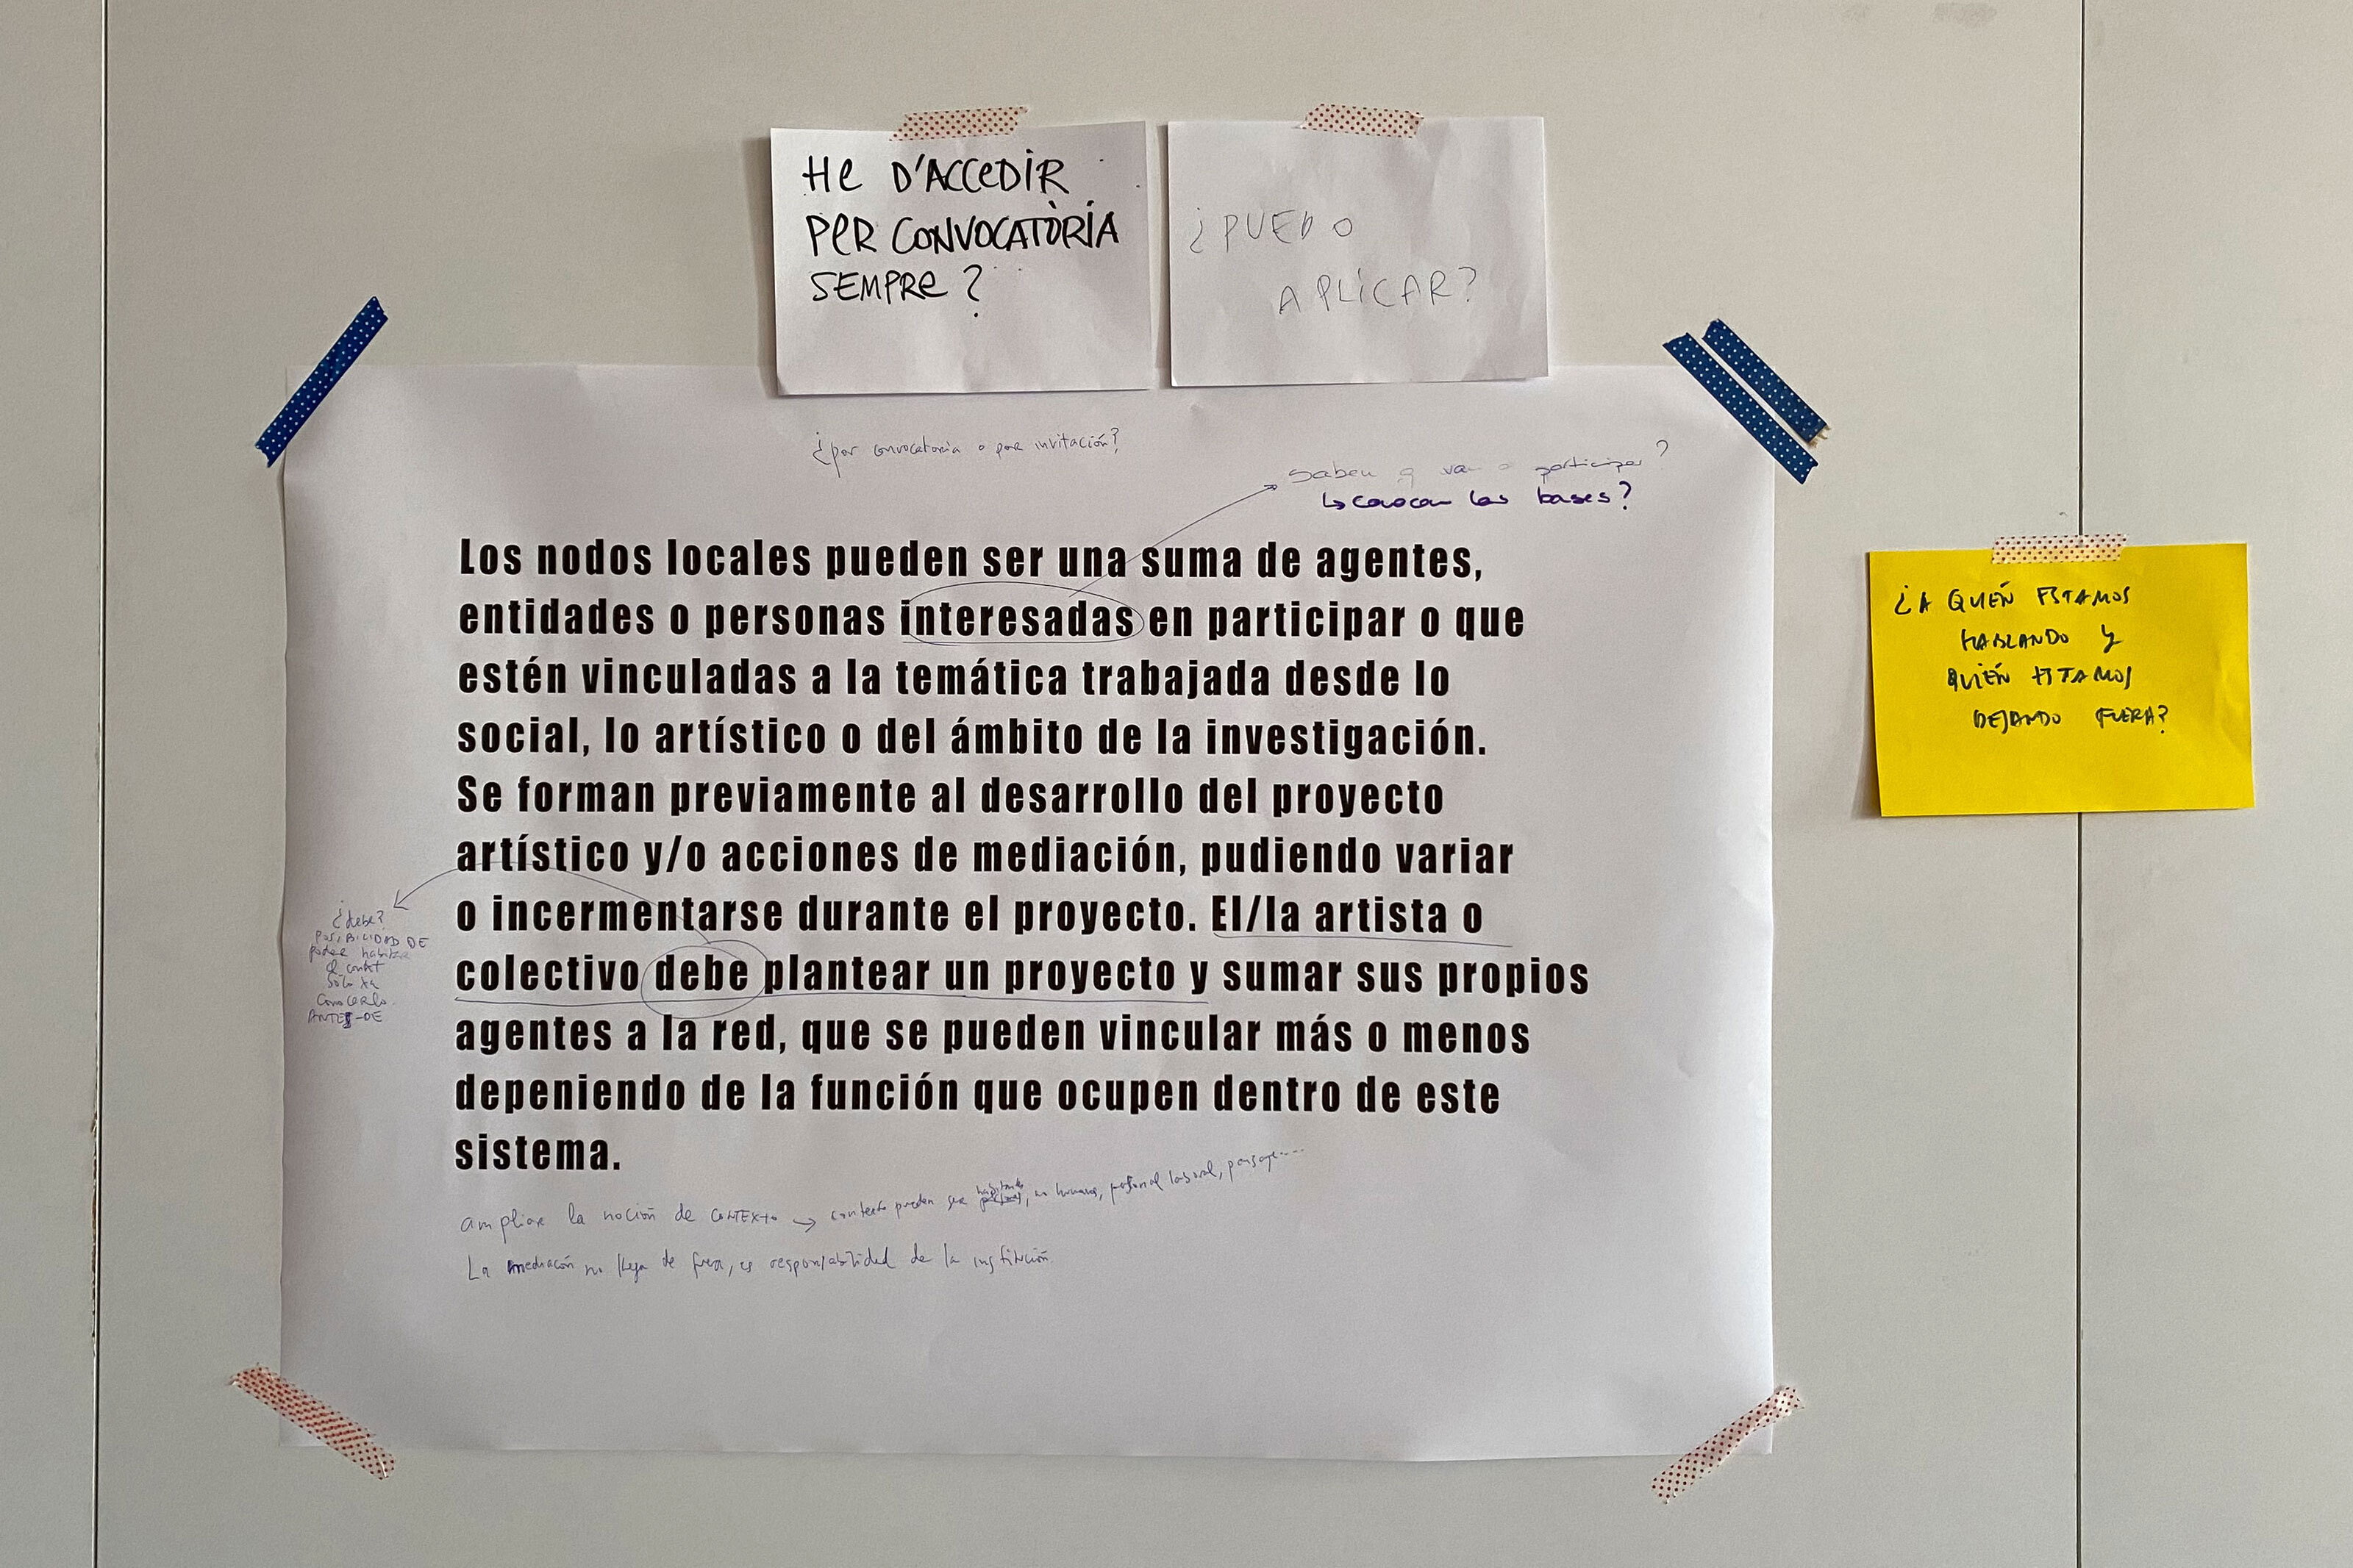 He D'ACCeDiR
PeR CONVOCATÒRiA
SEMPRe?
¿PUEDO
APLiCAR?
¿por convocatoria o por invitación?
Saben q van a participar?
↳ conocen las bases?
Los nodos locales pueden ser una suma de agentes,
entidades o personas interesadas en participar o que
estén vinculadas a la temática trabajada desde lo
social, lo artístico o del ámbito de la investigación.
Se forman previamente al desarrollo del proyecto
artístico y/o acciones de mediación, pudiendo variar
o incermentarse durante el proyecto. El/la artista o
colectivo debe plantear un proyecto y sumar sus propios
agentes a la red, que se pueden vincular más o menos
depeniendo de la función que ocupen dentro de este
sistema.
¿debe?
POSiBiLIDAD DE
poder habitar
el
sólo xa
conocerlo.
ANTES-DE
ampliar la noción de CONTEXTO → contexto pueden ser habitantes, no humanos, personal laboral, paisaje....
La mediación no llega de fuera, es responsabilidad de la institución.
¿A QUIÉN ESTAMOS
HABLANDO Y
QUIÉN ESTAMOS
DEJANDO FUERA?